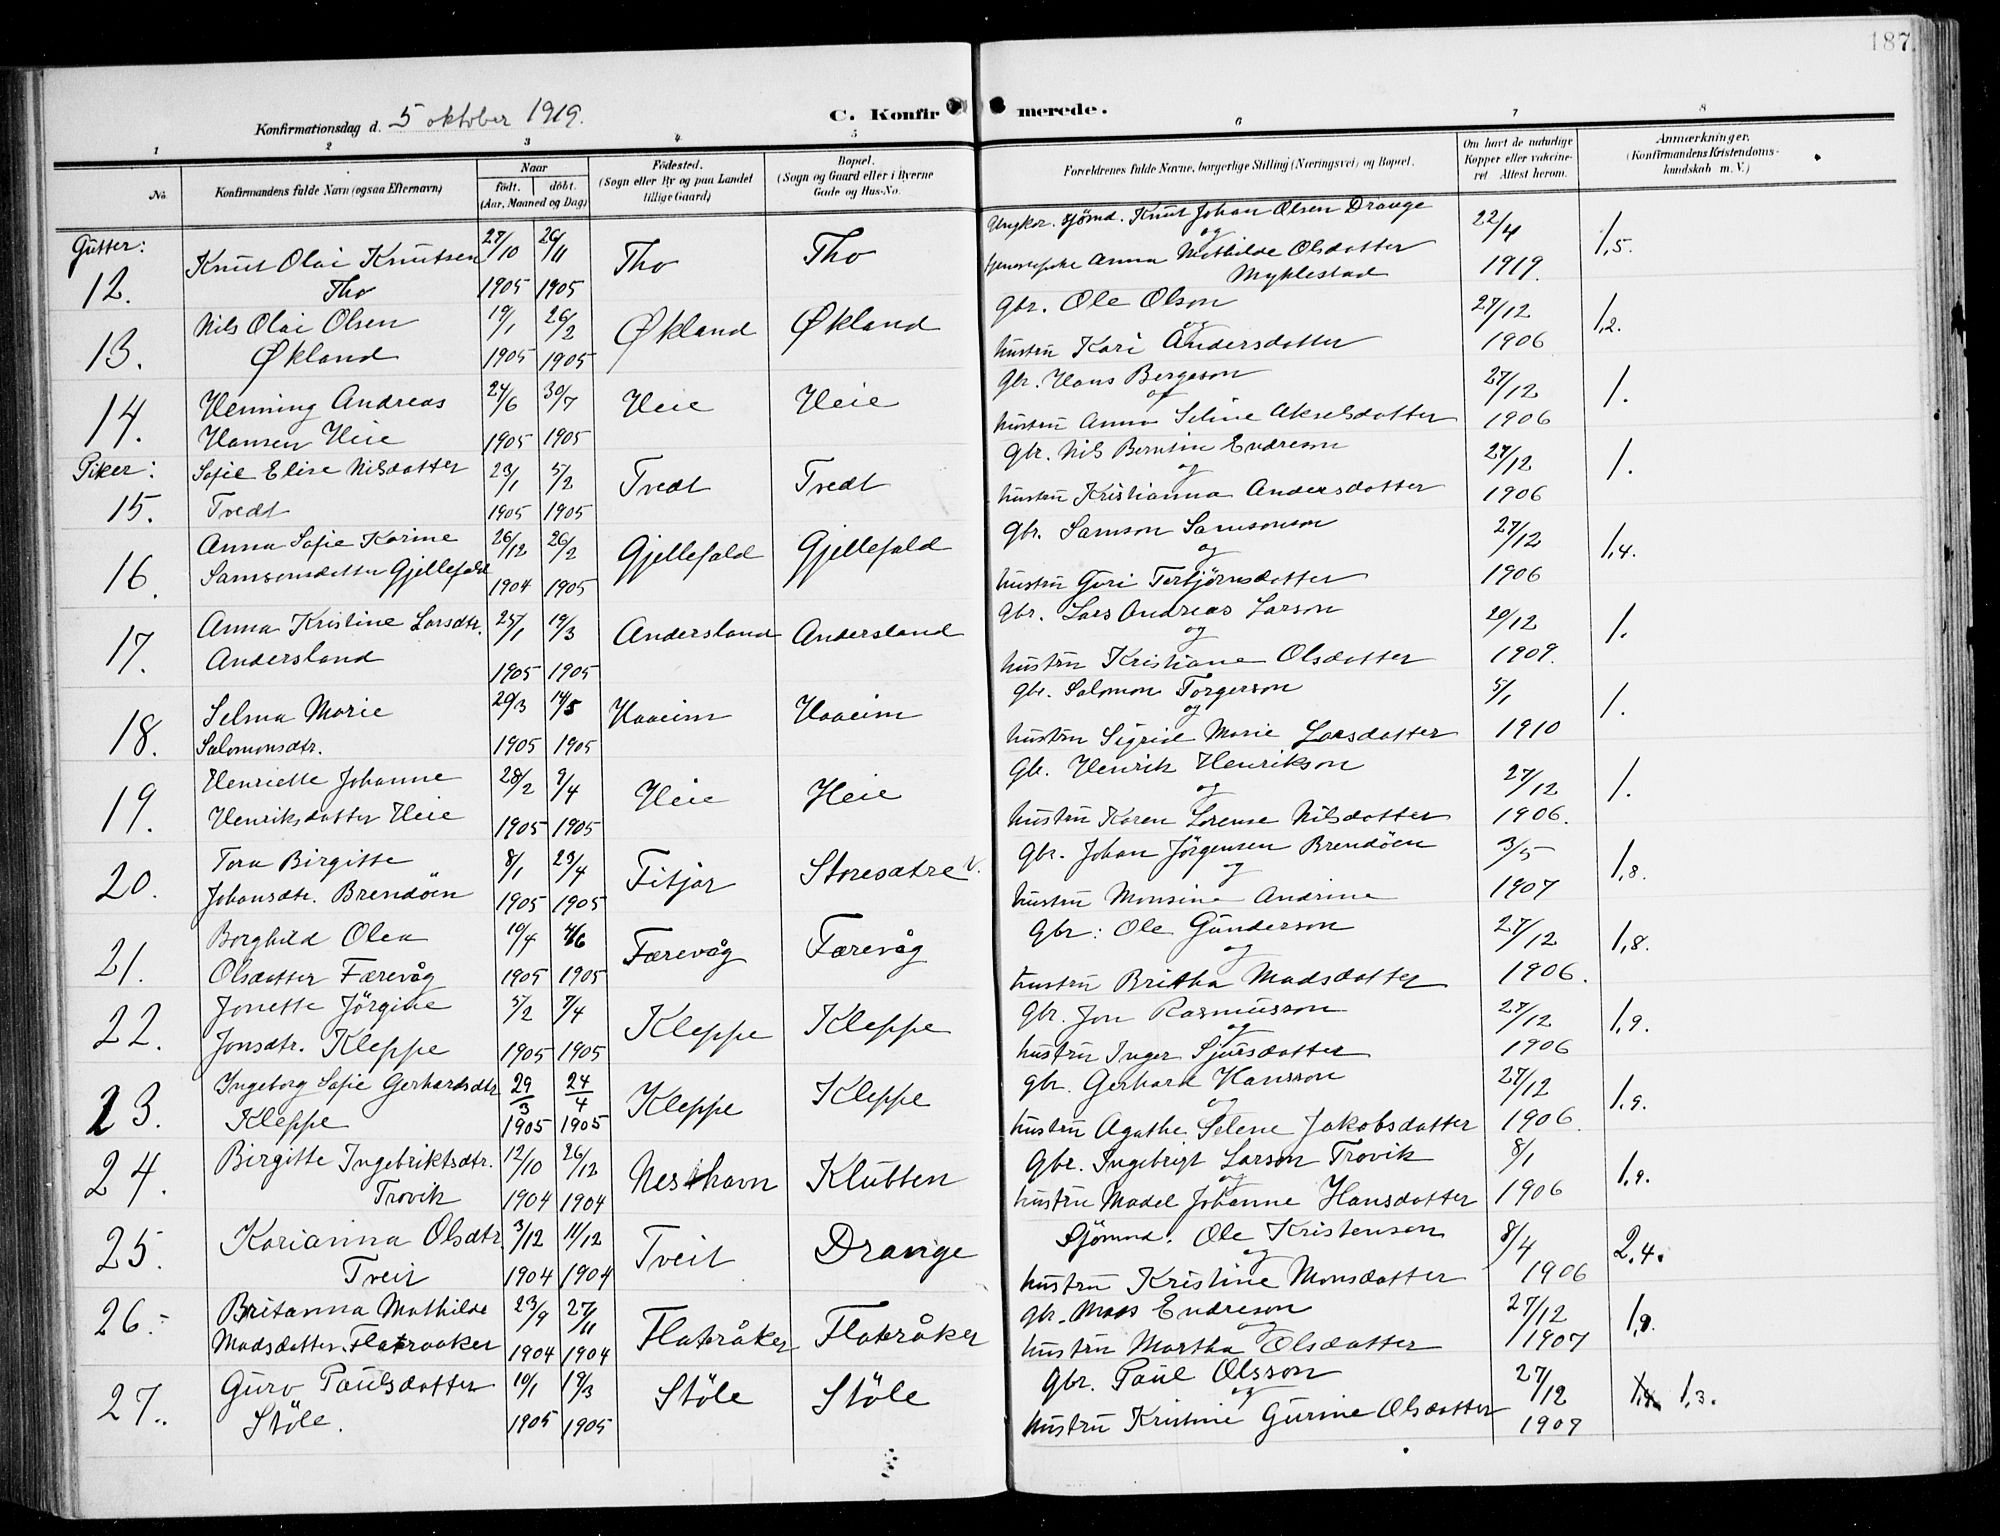 187
Konfirmationsdag d. 5 oktober 1919.
C. Konfirmerede.
1 2 3 4 5 6 7 8
No.
Konfirmandens fulde Navn (ogsaa Efternavn)
Naar
født. døbt.
(Aar, Maaned og Dag)
Fødested.
(Sogn eller By og paa Landet
tillige Gaard)
Bopæl.
(Sogn og Gaard eller i Byerne
Gade og Hus-No.
Forældrenes fulde Navne, borgerlige Stilling (Næringsvei) og Bopæl.
Om havt de naturlige
Kopper eller vakcine-
ret Attest herom.
Anmærkninger.
(Konfirmandens Kristendoms-
kundskab m. V.)
Gutter:
12. Knut Olai Knutsen 27/10 26/11 Tho Tho Ungkar. sjömd. Knut Johan Olsen Drange og 22/4 1,5.
Tho 1905 1905 Anna Mathilde Olsdatter Myklestad 1919.
13. Nils Olai Olsen 19/1 26/2 Økland Økland gbr. Ole Olson og 27/12 1,2.
Økland 1905 1905 hustru Kari Andersdatter 1906
14. Henning Andreas 24/6 30/7 Heie Heie Gbr. Hans Bergeson og 27/12 1.
Hansen Heie 1905 1905 hustru Anna Seline Akselsdatter 1906
Piker:
15. Sofie Elise Nilsdatter 23/1 5/2 Tvedt Tvedt gbr. Nils Berntin Endreson og 27/12 1.
Tvedt 1905 1905 hustru Kristianna Andersdatter 1906
16. Anna Sofie Karine 26/12 26/2 Gjellefald Gjellefald gbr. Samson Samsonson og 27/12 1,4.
Samsonsdatter Gjellefald 1904 1905 hustru Guri Torbjørnsdatter 1906
17. Anna Kristine Larsdtr. 25/1 19/3 Andersland Andersland gbr. Lars Andreas Larson og 20/12 1.
Andersland 1905 1905 hustru Kristiane Olsdatter 1909.
18. Selma Marie 20/3 14/5 Haaeim Haaeim gbr. Salomon Torgerson og 5/1 1.
Salomonsdtr. 1905 1905 hustru Sigrid Marie Larsdatter 1910
19. Henriette Johanne 28/2 9/4 Heie Heie Gbr. Henrik Henrikson og 27/12 1.
Henriksdatter Heie 1905 1905 hustru Karen Lorense Nilsdatter 1906.
20. Tora Birgitte 8/1 23/4 Fitjar Storesætre v. gbr. Johan Jörgensen Brendöen og 3/5 1,8.
Johansdtr. Brendöen 1905 1905 hustru Monsine Andrine 1907
21. Borghild Olea 10/4 4/6 Færevåg Færevåg gbr: Ole Gunderson og 27/12 1,8.
Olsdatter Færevåg 1905 1905 hustru Britha Madsdatter 1906.
22. Jonette Jörgine 5/2 7/4 Kleppe Kleppe gbr. Jon Rasmusson og 27/12 1,9.
Jonsdtr. Kleppe 1905 1905 hustru Inger Sjursdatter 1906
23. Ingeborg Sofie Gerhardsdtr 29/3 24/4 Kleppe Kleppe gbr. Gerhard Hansson og 27/12 1,9.
Kleppe 1905 1905 hustru Agathe Selene Jakobsdatter 1906.
24. Birgitte Ingebriktsdtr. 12/10 26/12 Neshavn Klubben gbr. Ingebrigt Larson Trovik og 8/1 1,9.
Trovik 1904 1904 hustru Madel Johanne Hansdatter 1906
25. Karianna Olsdtr. 3/12 11/12 Tveit Drange Sjömnd. Ole Kristenson og 8/4 2,4.
Tveit 1904 1904 hustru Kristine Monsdatter 1906
26. Britanna Mathilde 23/9 27/11 Flatråker Flatråker gbr. Mads Endreson og 27/12
Madsdatter Flatraaker 1904 1904 hustru Martha Olsdatter 1907
27. Guro Paulsdatter 10/1 19/3 Stöle Stöle gbr. Paul Olsson og 27/12 1,3.
Stöle. 1905 1905 hustru Kristine Gurine Olsdatter 1907